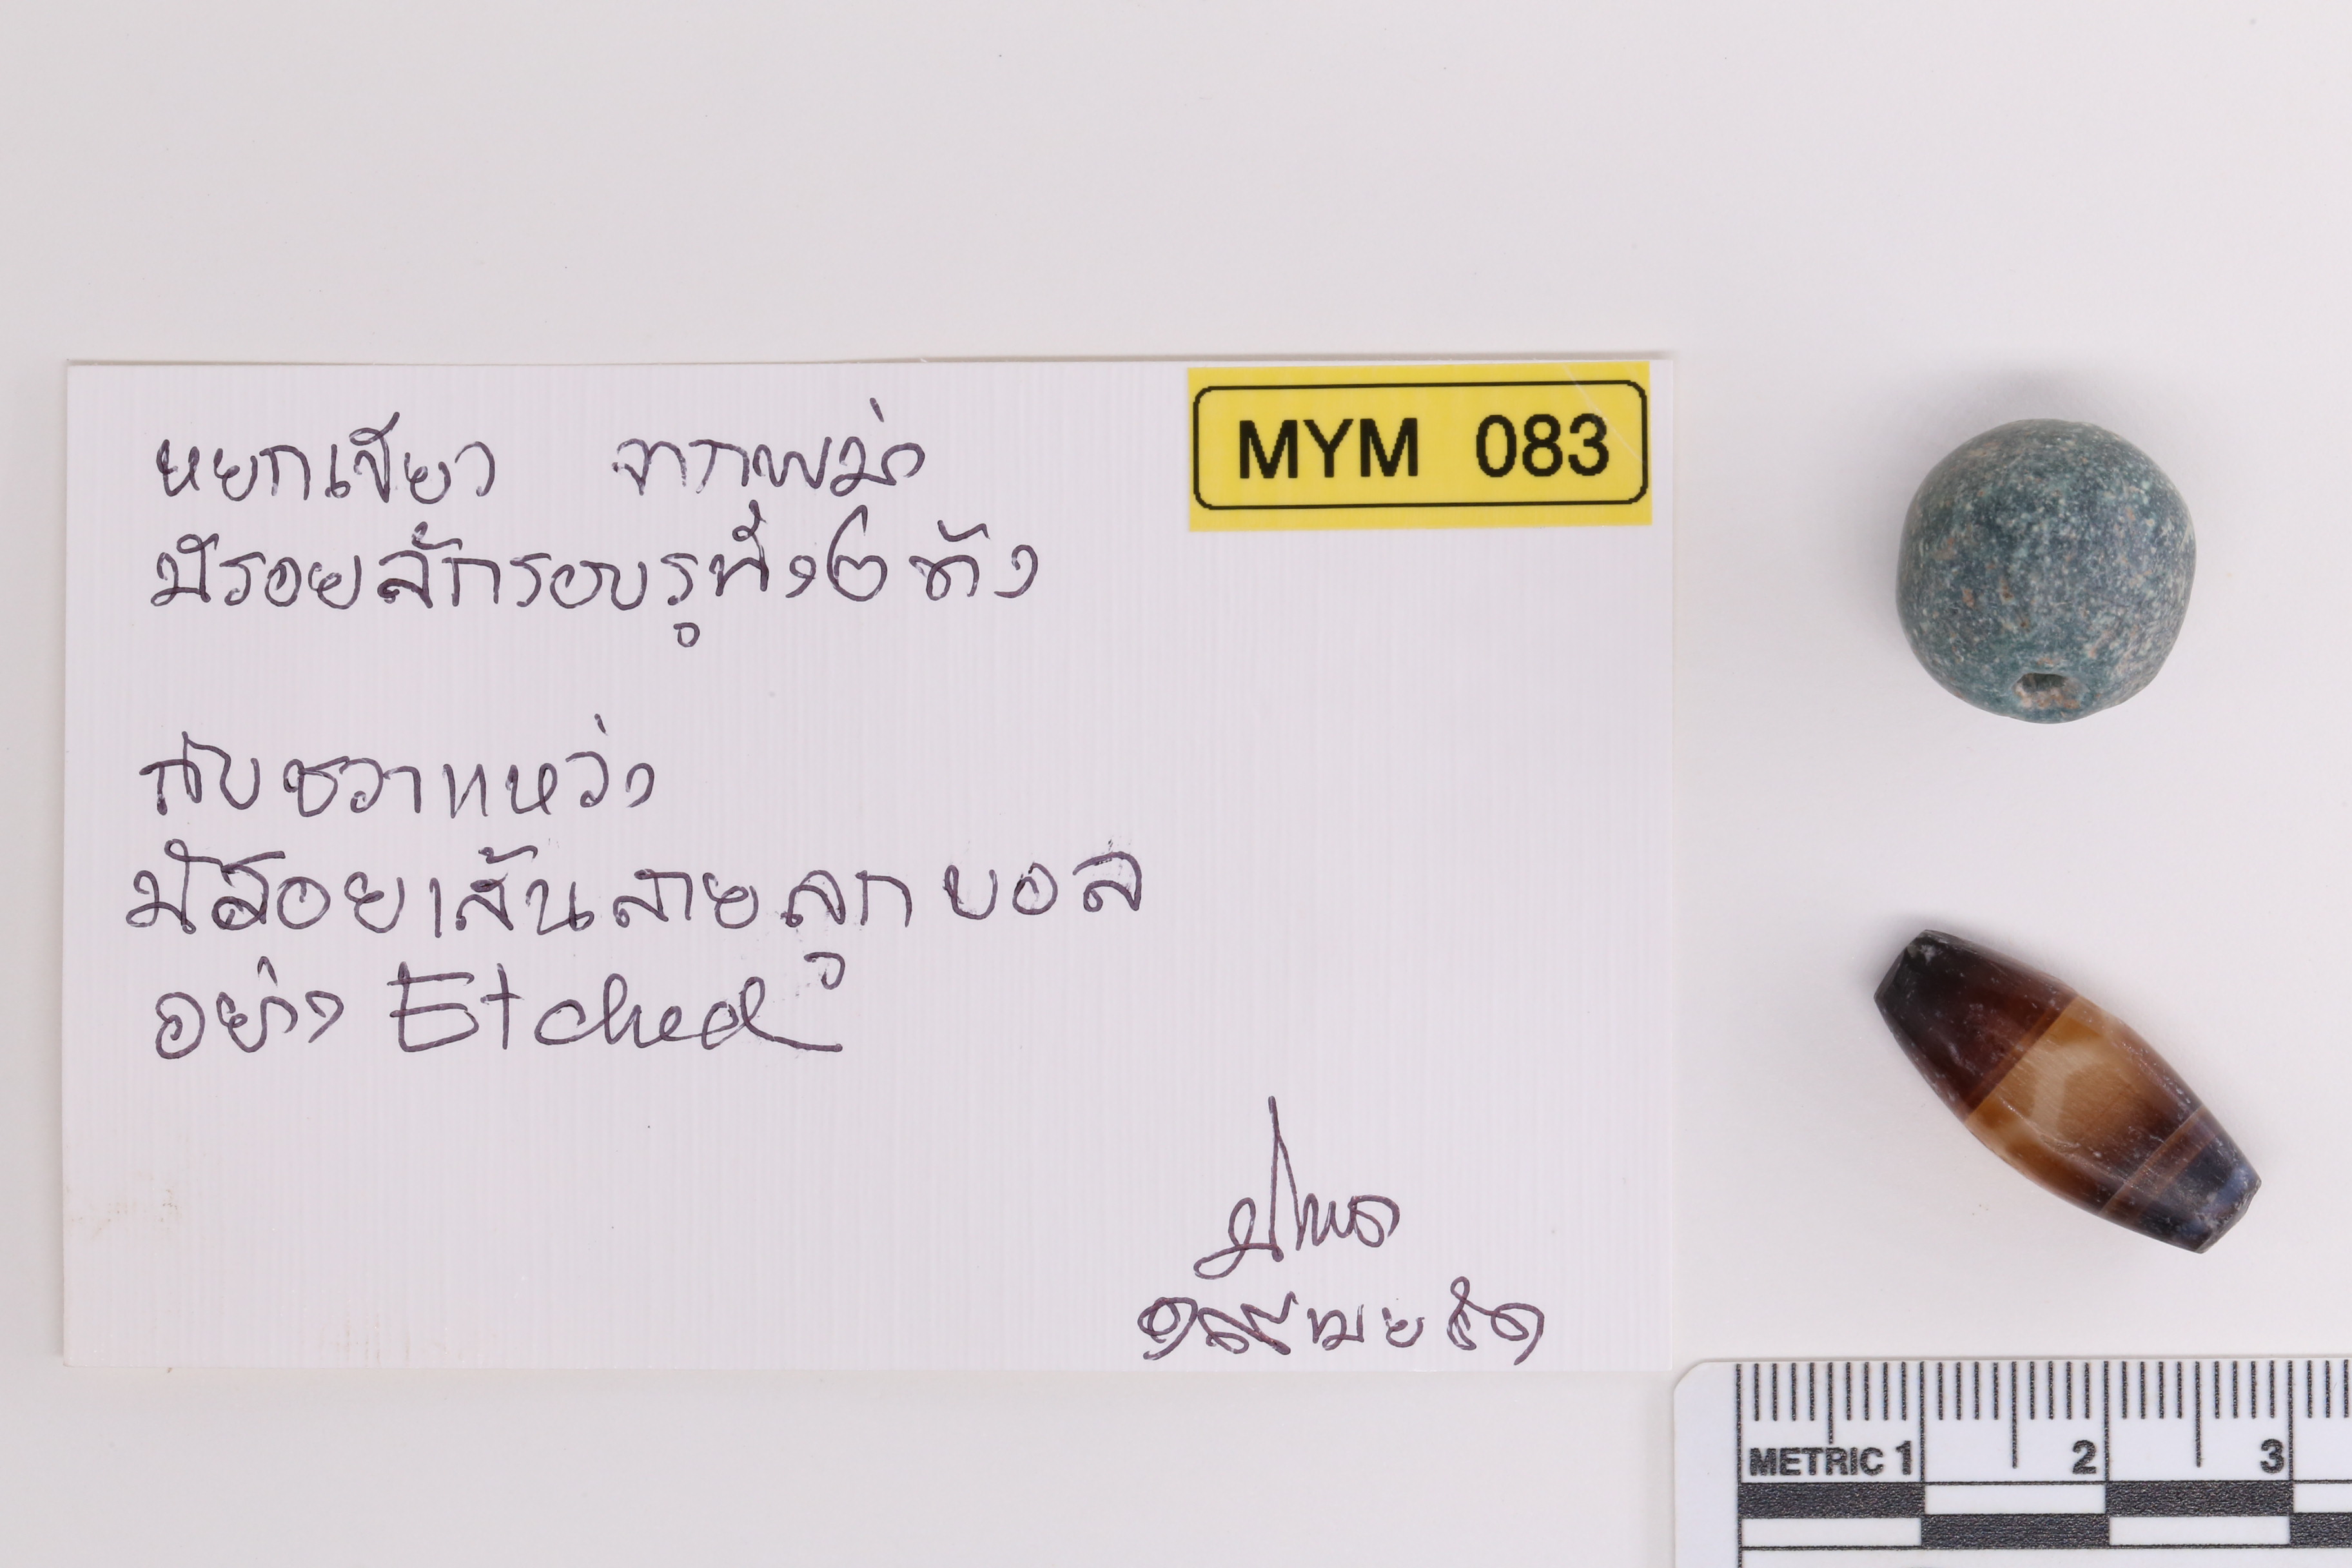 หยกเขียว จากพม่า
MYM 083
มีรอยสักรอบรูทั้ง๒ข้าง
กับชวาแหว่ง
มีรอยเส้นลายลูกบอล
อย่าง Etched
METRIC 1 2 3